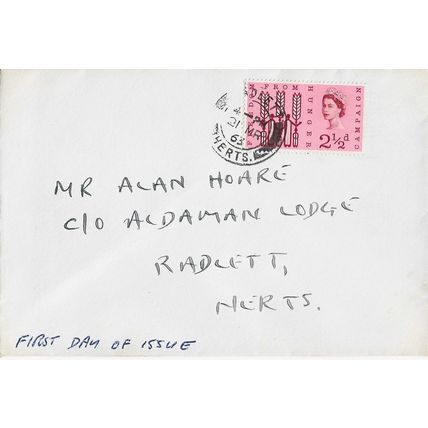 FREEDOM FROM HUNGER CAMPAIGN
2½d
21 MR
63
HERTS.
MR ALAN HOARE
C/O ALDAMAN LODGE
RADLETT,
HERTS.
FIRST DAY OF ISSUE